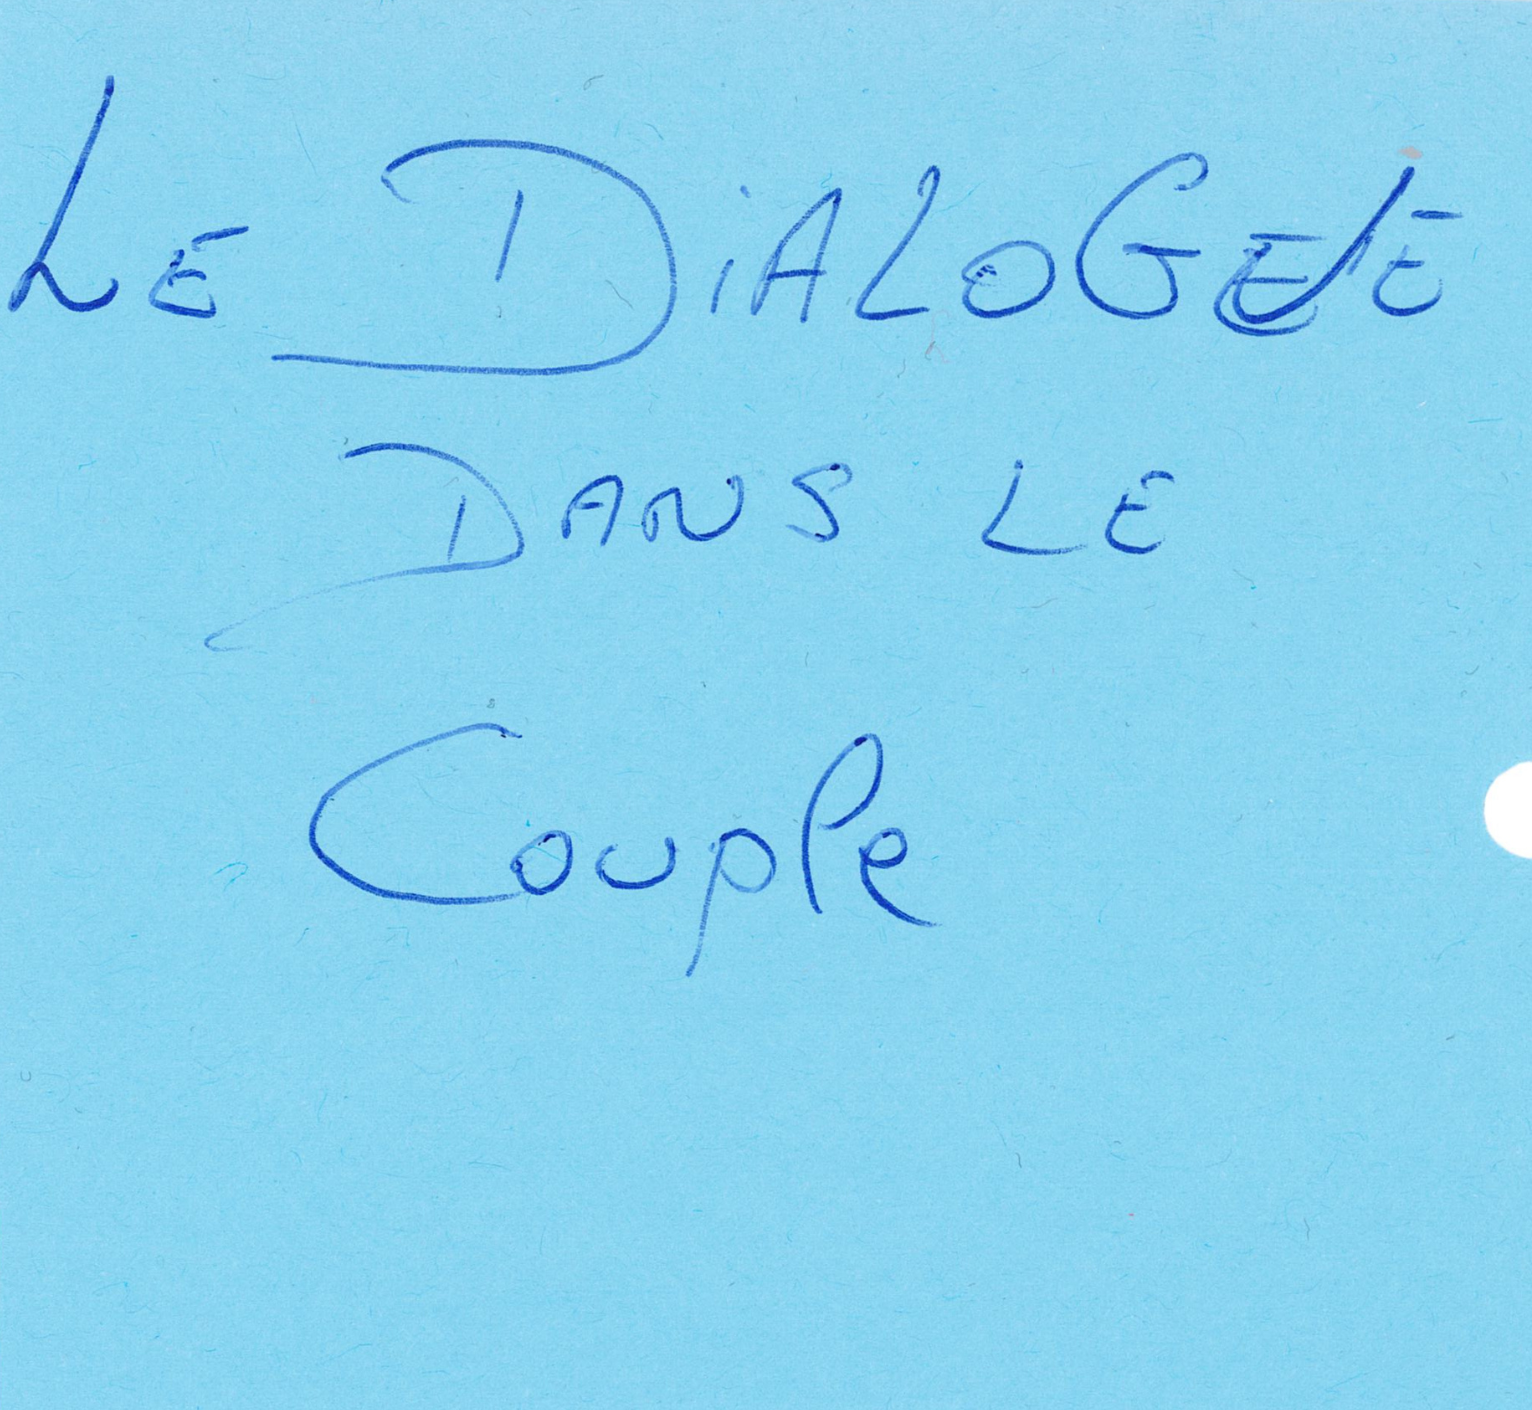 LE DiALOGUE
DANS LE
Couple